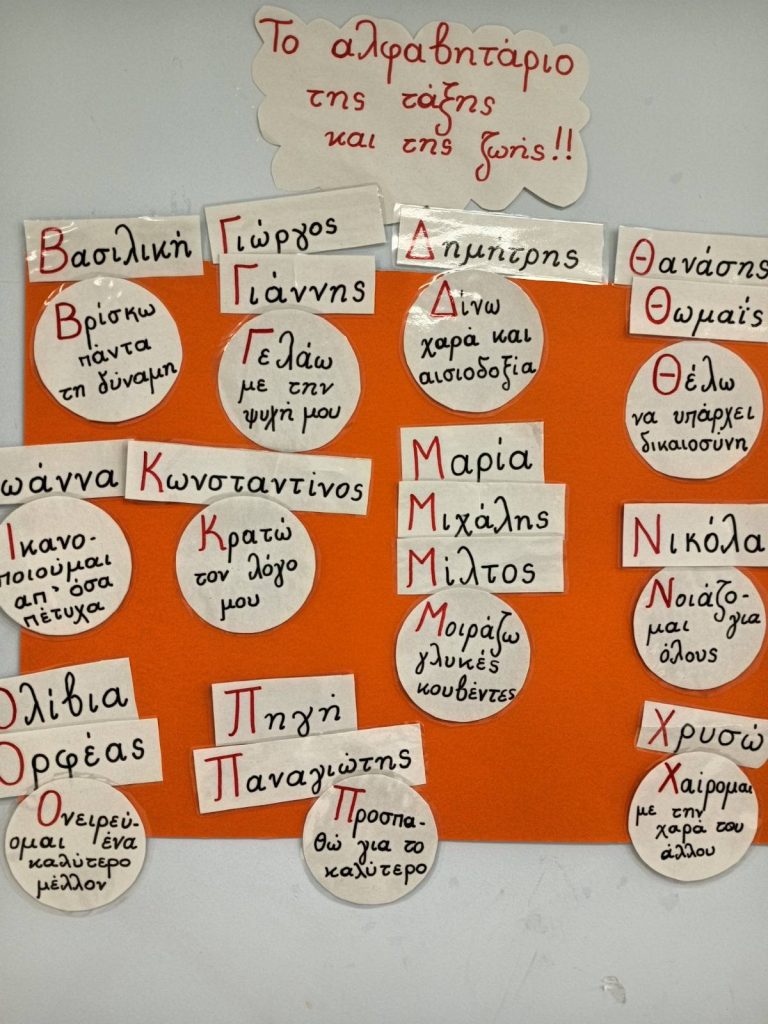 Το αλφαβητάριο
της τάξης
και της ζωής!!
Βασιλική
Βρίσκω
πάντα
τη δύναμη
Γιώργος
Γιάννης
Γελάω
με την
ψυχή μου
Δημήτρης
Δίνω
χαρά και
αισιοδοξία
Θανάσης
Θωμαΐς
Θέλω
να υπάρχει
δικαιοσύνη
ωάννα
Ικανο-
ποιούμαι
απ' όσα
πέτυχα
Κωνσταντίνος
Κρατώ
τον λόγο
μου
Μαρία
Μιχάλης
Μίλτος
Μοιράζω
γλυκές
κουβέντες
Νικόλα
Νοιάζο-
μαι για
όλους
Ολίβια
Ορφέας
Ονειρεύ-
ομαι ένα
καλύτερο
μέλλον
Πηγή
Παναγιώτης
Προσπα-
θώ για το
καλύτερο
Χρυσώ
Χαίρομαι
με την
χαρά του
άλλου